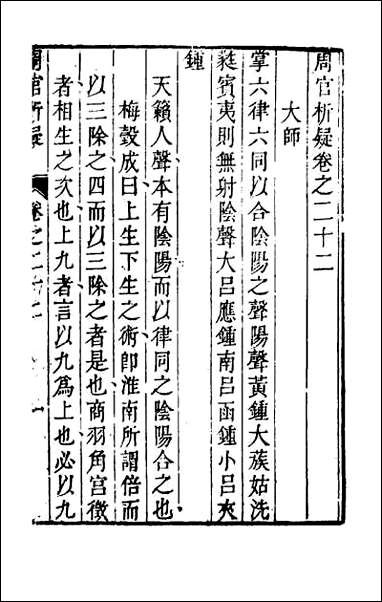 周官析疑卷之二十二
大師
掌六律六同以合陰陽之聲陽聲黃鍾大蔟姑洗
蕤賓夷則無射陰聲大呂應鍾南呂函鍾小呂夾
鍾
天籟人聲本有陰陽而以律同之陰陽合之也
梅瑴成曰上生下生之術卽淮南所謂倍而
以三除之四而以三除之者是也商羽角宮徵
者相生之次也上九者言以九爲上也必以九
周官析疑
卷之二十二
一